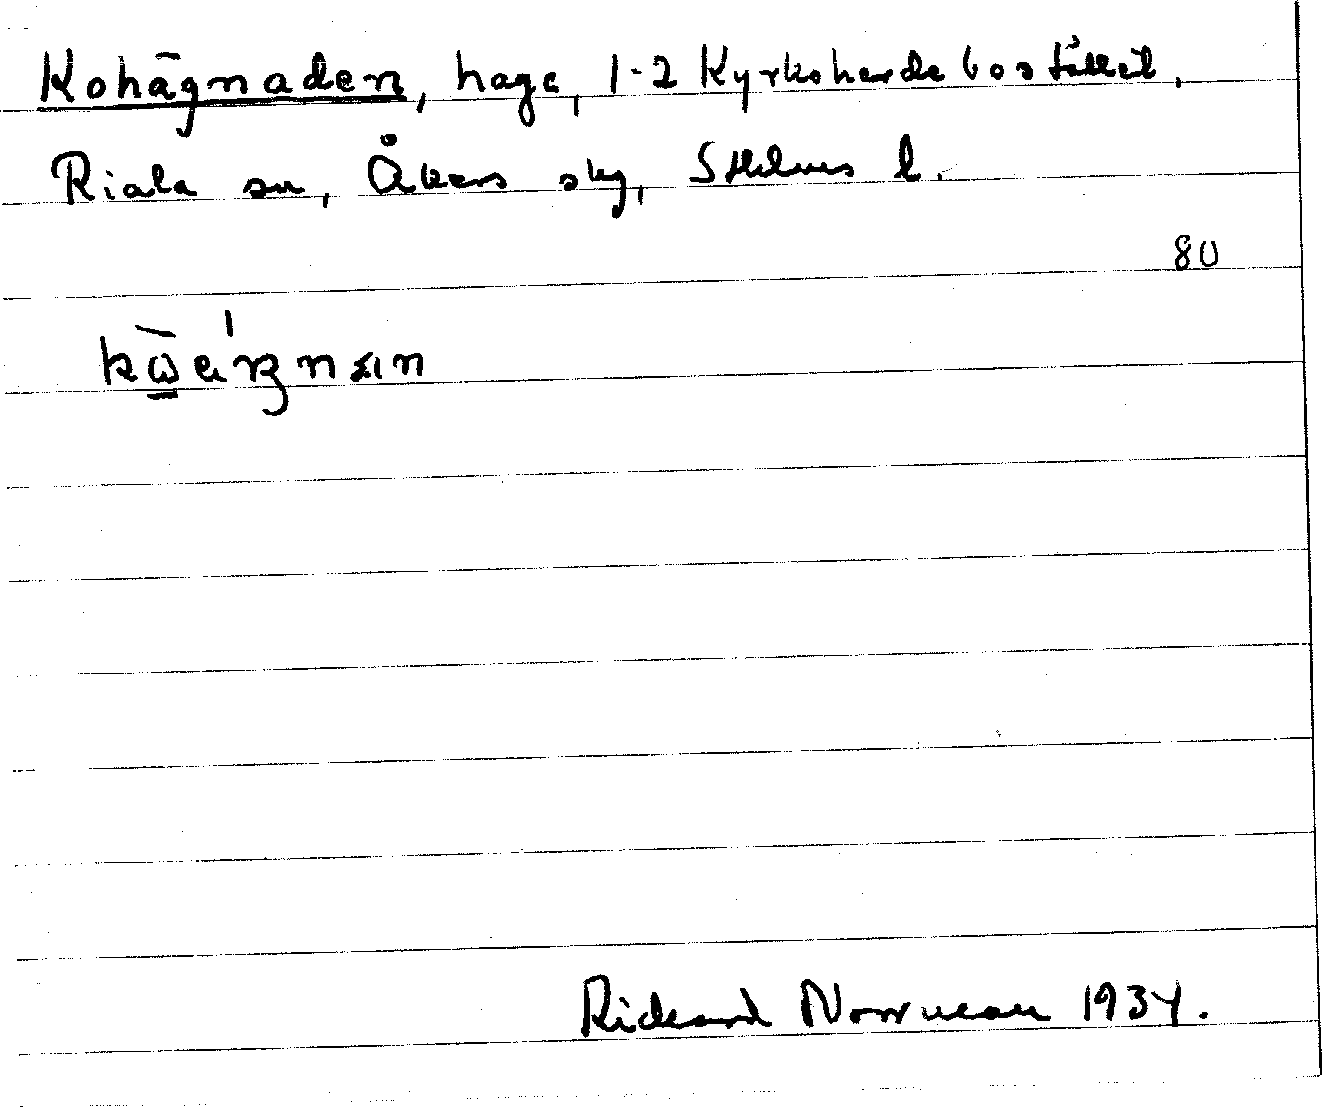 Kohägnaden, hage, 1-2 Kyrkoherdebostället,
Riala sn, Åkers skg, Sthlms l.
80
Rickard Norrman 1934.